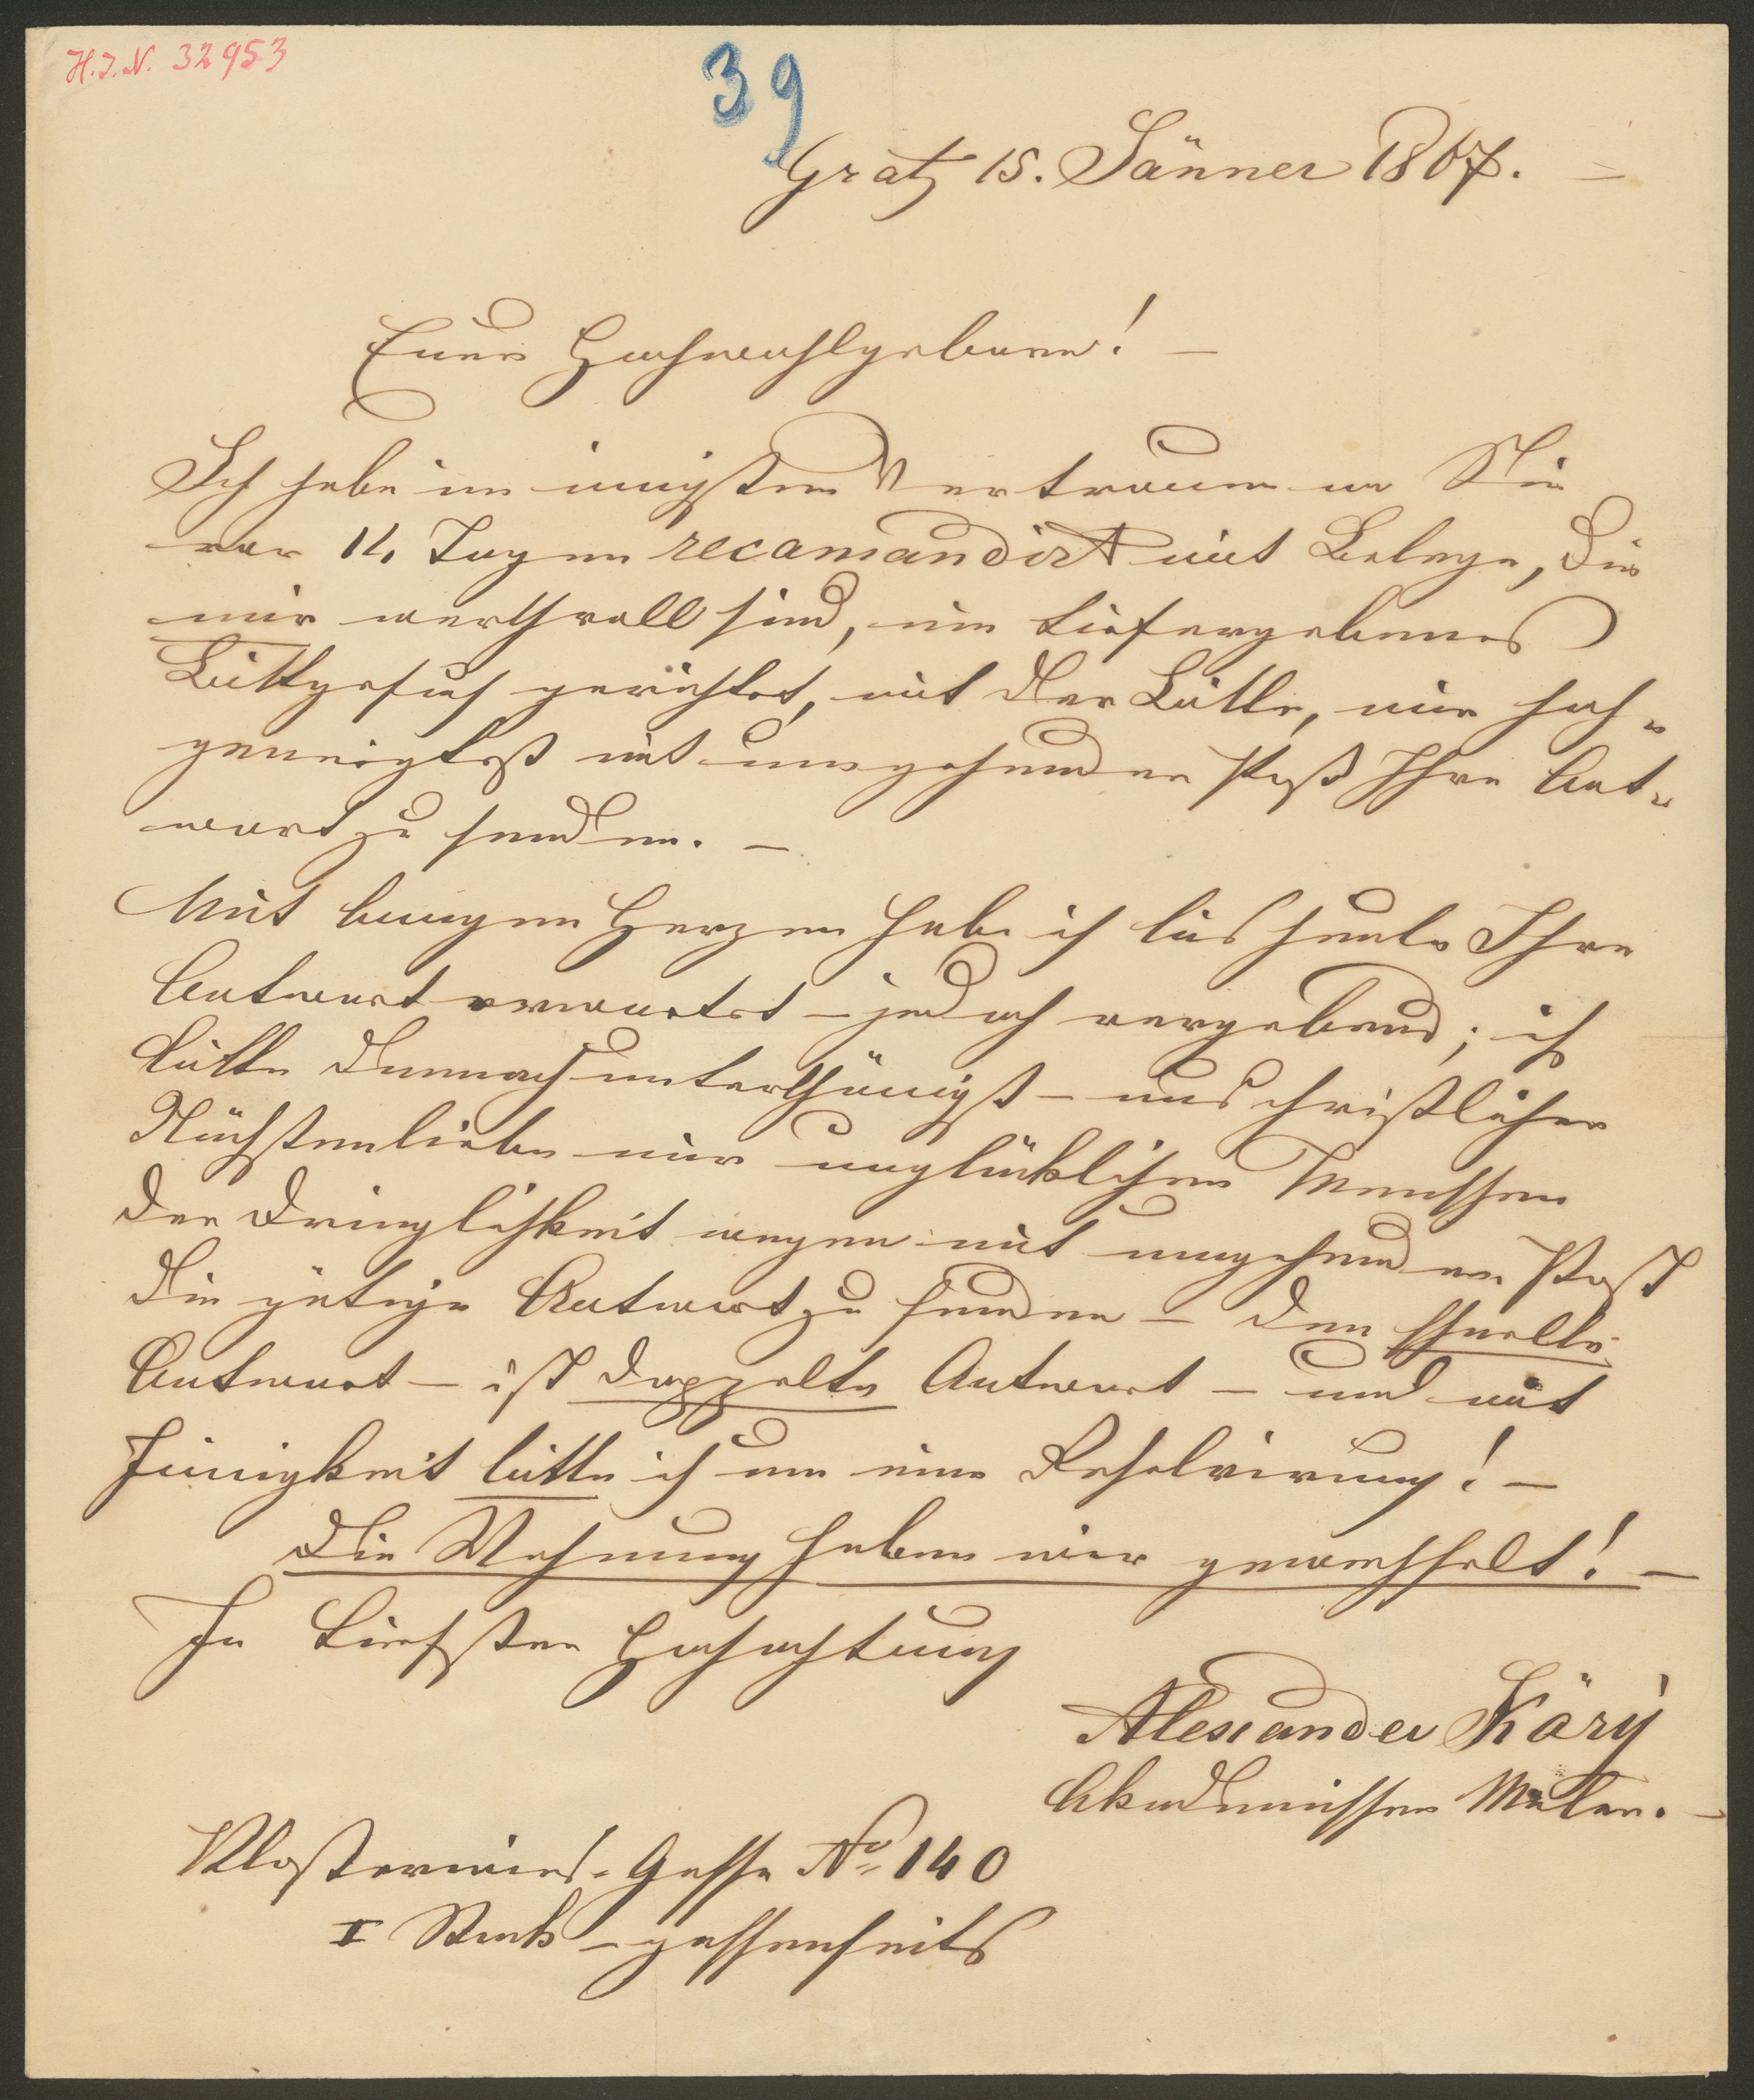 H.I.N. 32953
39
Gratz 15. Jänner 1867. –
Euer Hochwohlgeboren! –
Ich habe im innigsten Vertrauen an Sie
vor 14 Tagen recamandirt mit Belege, die
mir werthvoll sind, ein tiefergebenes
Bittgesuch gerichtet, mit der Bitte, mir hoch=
geneigtest mit umgehender Post Ihre Ant=
wort zu senden. –
Mit bangen Herzen habe ich bis heute Ihre
Antwort erwartet – jedoch vergebens; ich
bitte demnach unterthänigst – aus christlicher
Nächstenliebe mir unglücklichen Menschen
der Dringlichkeit wegen mit umgehender Post
die gütige Antwort zu senden – den schnelle
Antwort – ist doppelte Antwort – und mit
Innigkeit bitte ich um eine Resolvirung! –
Die Wohnung haben wir gewechselt! –
In tiefster Hochachtung
Alexander Käry
Akademischer Maler. –
Klosterwies-Gasse No 140
I Stock – gassenseits